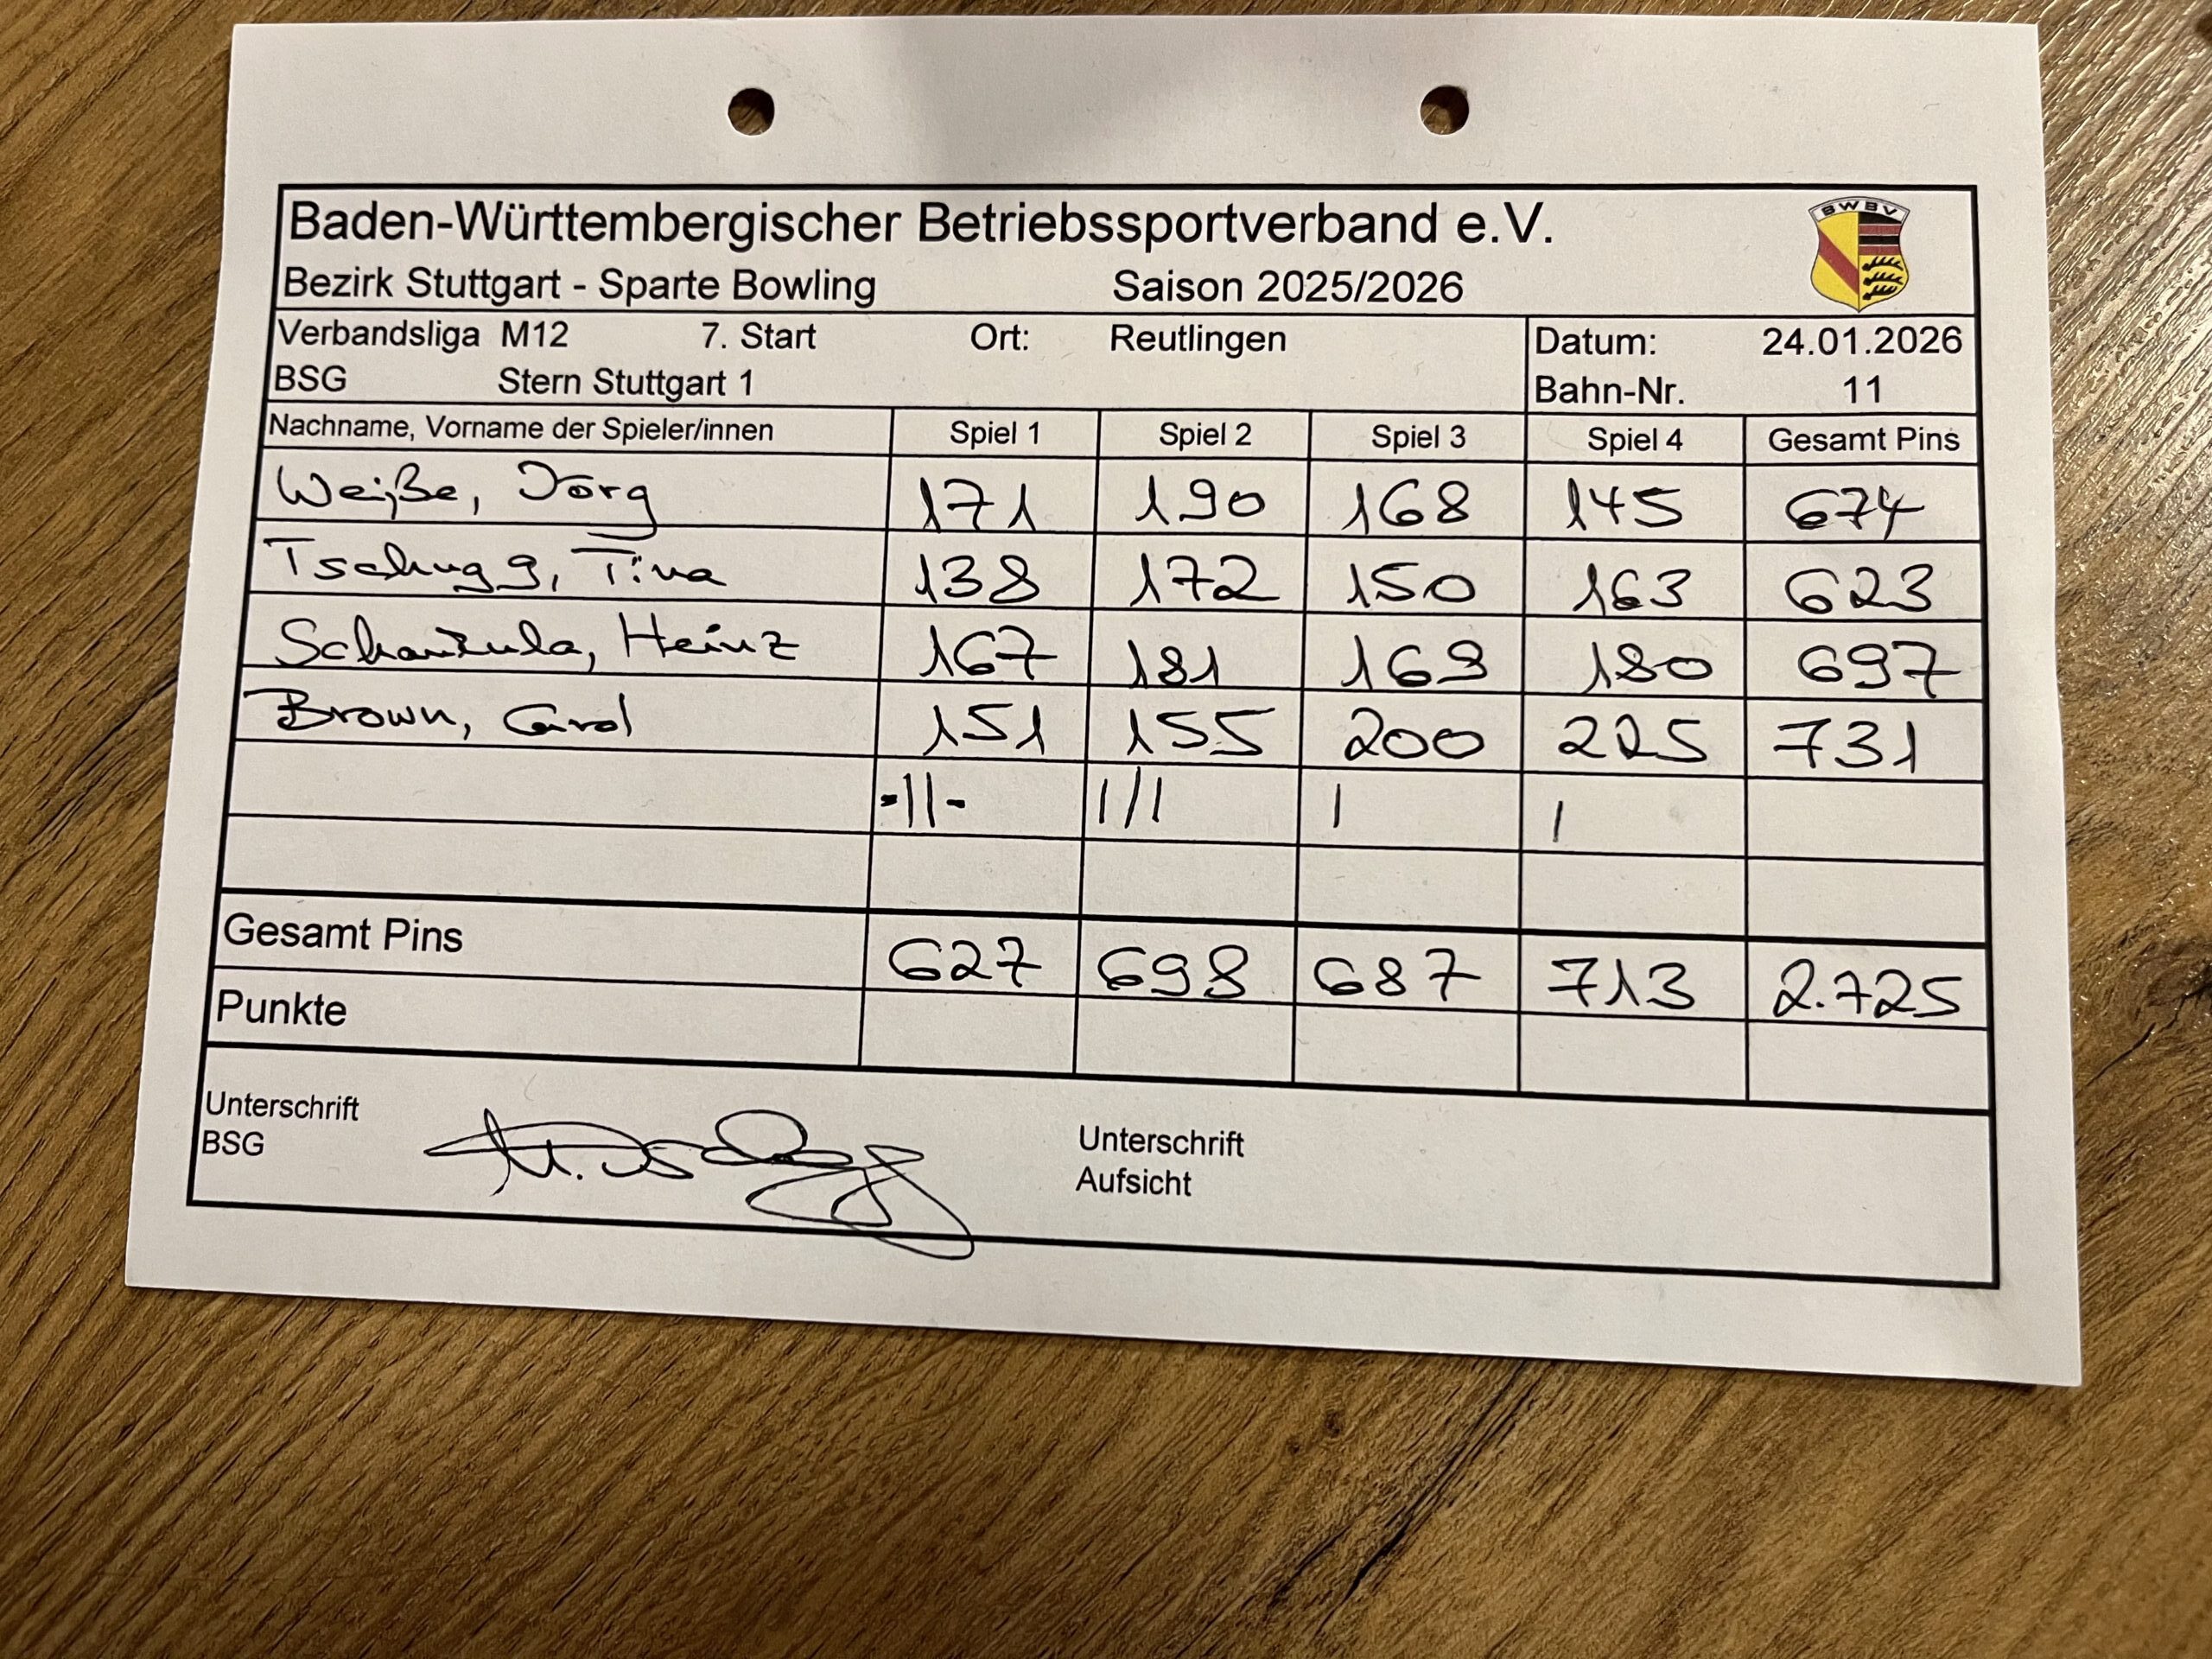 BWBV
Baden-Württembergischer Betriebssportverband e.V.
Bezirk Stuttgart - Sparte Bowling Saison 2025/2026
Verbandsliga M12 7. Start Ort: Reutlingen Datum: 24.01.2026
BSG Stern Stuttgart 1 Bahn-Nr. 11
Nachname, Vorname der Spieler/innen Spiel 1 Spiel 2 Spiel 3 Spiel 4 Gesamt Pins
Weiße, Jörg 171 190 168 145 674
Tschugg, Tina 138 172 150 163 623
Heinz 167 181 169 180 697
Brown, Carol 151 155 200 225 731
Gesamt Pins 627 698 687 713 2.725
Punkte
Unterschrift
BSG
Unterschrift
Aufsicht